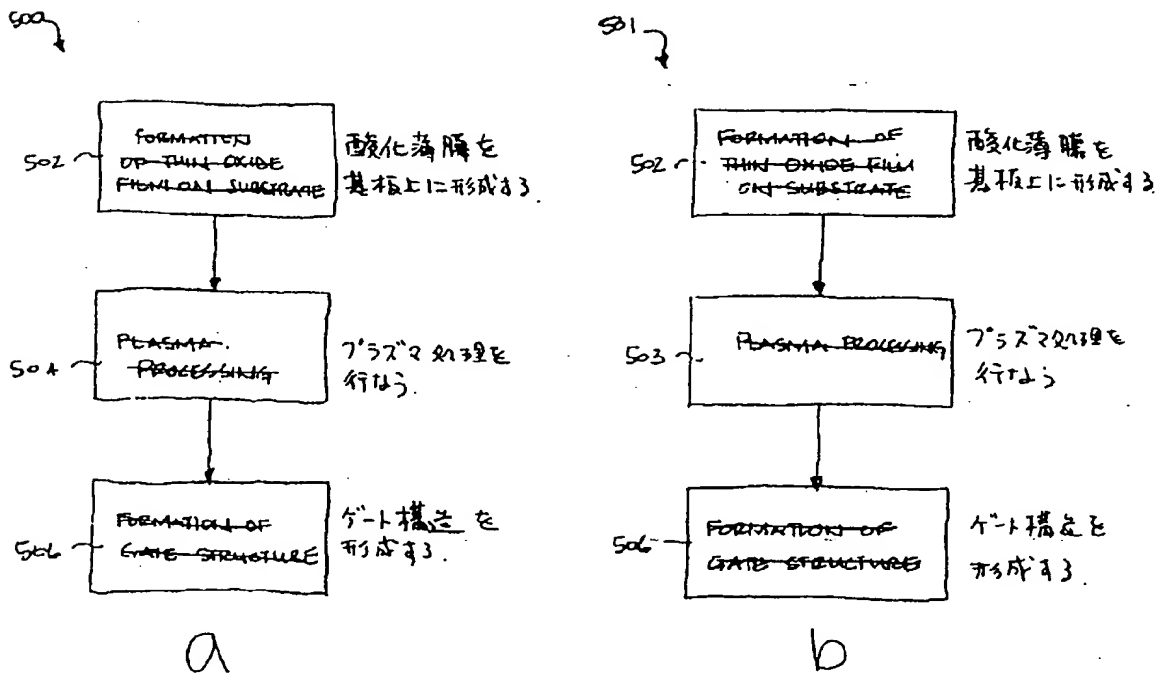 500
502
FORMATION
OF THIN OXIDE
FILM ON SUBSTRATE
酸化薄膜を
基板上に形成する.
504
PLASMA
PROCESSING
プラズマ処理を
行なう.
506
FORMATION OF
GATE STRUCTURE
ゲート構造を
形成する.
a
501
502
FORMATION OF
THIN OXIDE FILM
ON SUBSTRATE
酸化薄膜を
基板上に形成する.
503
PLASMA PROCESSING
プラズマ処理を
行なう
506
FORMATION OF
GATE STRUCTURE
ゲート構造を
形成する.
b